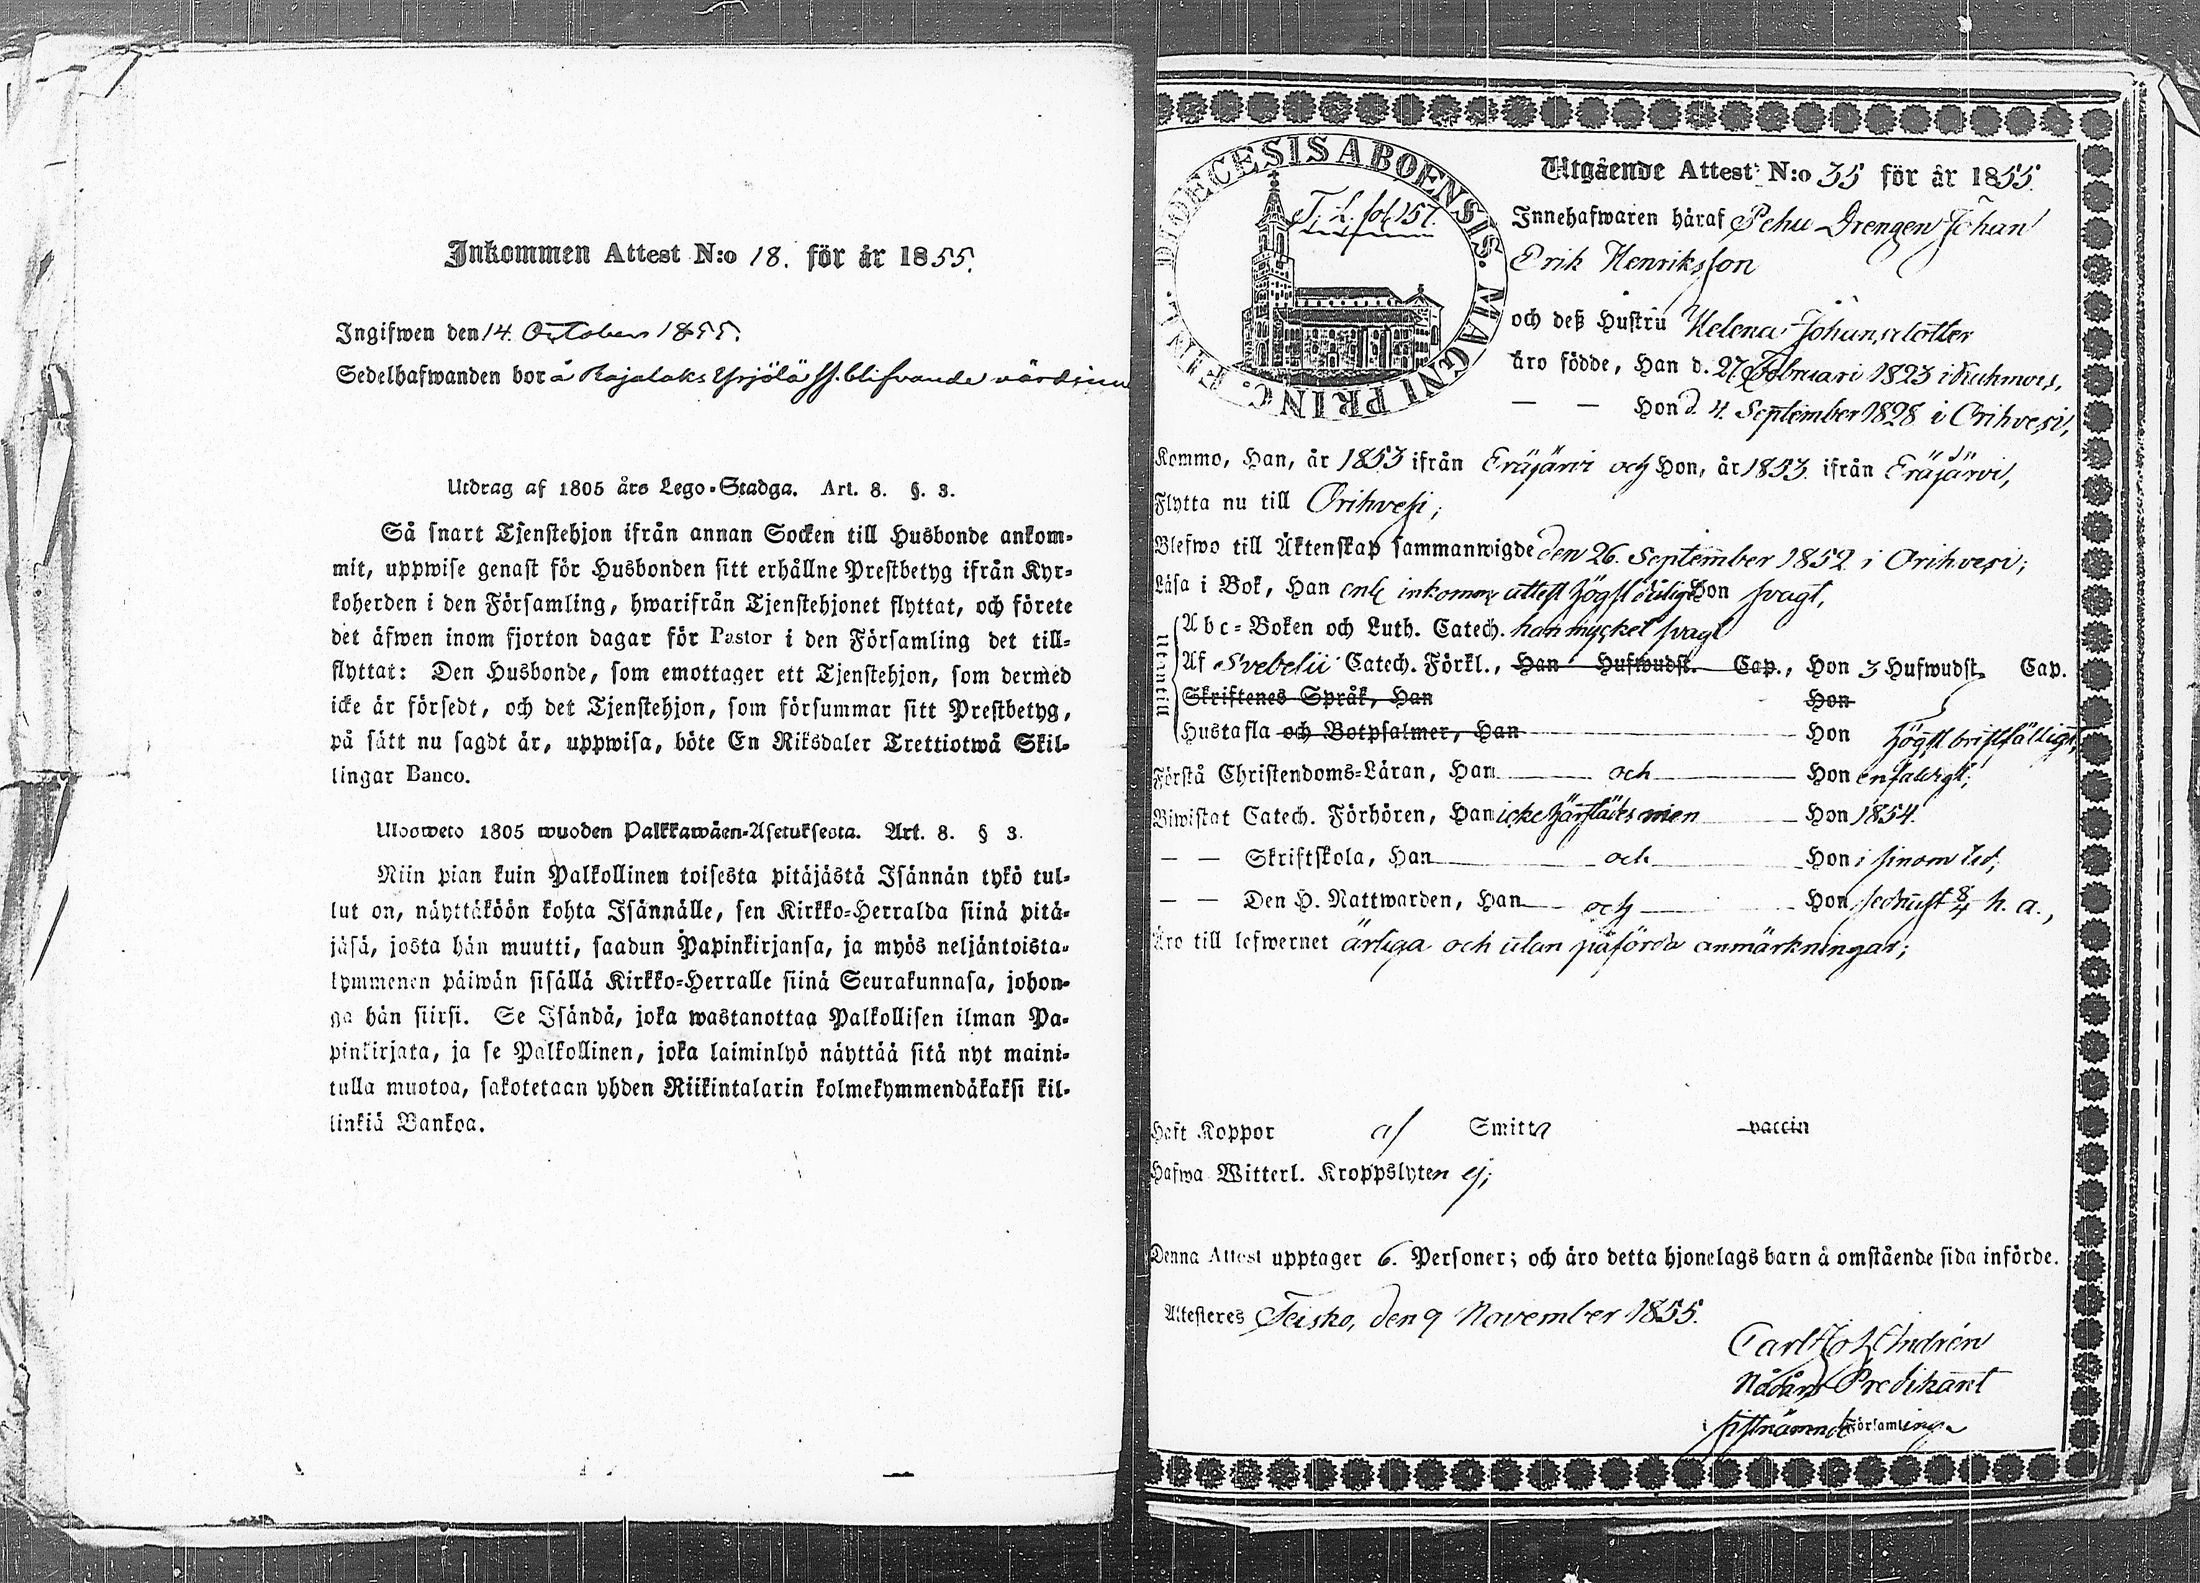 Inkommen Attest N:o 18. för år 1855.
Ingifwen den 14. October 1855.
Sedelhafwanden bor å Rajalaks Yrjölä blifvande värdinna
Utdrag af 1805 års Lego-Stadga. Art. 8. §. 3.
Så snart Tjenstehjon ifrån annan Socken till Husbonde ankom-
mit, uppwise genast för Husbonden sitt erhållne Prestbetyg ifrån Kyr-
koherden i den Församling, hwarifrån Tjenstehjonet flyttat, och förete
det äfwen inom fjorton dagar för Pastor i den Församling det till-
flyttat: Den Husbonde, som emottager ett Tjenstehjon, som dermed
icke är försedt, och det Tjenstehjon, som försummar sitt Prestbetyg,
på sätt nu sagdt är, uppwisa, böte En Riksdaler Trettiotwå Skil-
lingar Banco.
Ulosweto 1805 wuoden Palkkawäen-Asetuksesta. Art. 8. § 3.
Niin pian kuin Palkollinen toisesta pitäjästä Isännän tykö tul-
lut on, näyttäköön kohta Isännälle, sen Kirkko-Herralda siinä pitä-
jäsä, josta hän muutti, saadun Papinkirjansa, ja myös neljäntoista-
kymmenen päiwän sisällä Kirkko-Herralle siinä Seurakunnasa, johon-
ga hän siirsi. Se Isändä, joka wastanottaa Palkollisen ilman Pa-
pinkirjata, ja se Palkollinen, joka laiminlyö näyttää sitä nyt maini-
tulla muotoa, sakotetaan yhden Riikintalarin kolmekymmendäkaksi kil-
linkiä Bankoa.
DIOECESIS ABOENSIS. MAGNI PRINC. FINL.
T. L. fol 157.
Utgående Attest N:o 35 för år 1855.
Innehafwaren häraf Pehu Drengen Johan
Erik Henriksson
och deß Hustru Helena Johansdotter
äro födde, Han d. 27 Februari 1823 i Kuhmois,
— — Hon d. 4. September 1828 i Orihvesi,
Kommo, Han, år 1853 ifrån Eräjärvi och Hon, år 1853 ifrån Eräjärvi,
Flytta nu till Orihvesi;
Blefwo till Äktenskap sammanwigde den 26. September 1852 i Orihvesi;
Läsa i Bok, Han enl. inkomm attest högst dåligt Hon svagt,
Utantill
Abc-Boken och Luth. Catech. han mycket svagt
Af Svebelii Catech. Förkl., Han Hufwudst. Cap., Hon 3 Hufwudst. Cap.
Skriftenes Språk, Han Hon
Hustafla och Botpsalmer, Han Hon högst bristfälligt,
Förstå Christendoms-Läran, Han och Hon enfaldigt;
Biwistat Catech. Förhören, Han icke härstädes men Hon 1854.
— — Skriftskola, Han och Hon i sinom tid;
— — Den H. Nattwarden, Han och Hon sednast 8/4 h. a.,
Äro till lefwernet ärliga och utan påförda anmärkningar;
Haft Koppor af Smitta vaccin
Hafwa Witterl. Kroppslyten ej;
Denna Attest upptager 6. Personer; och äro detta hjonelags barn å omstående sida införde.
Attesteres Teisko, den 9 November 1855.
Carl Joh Andrén
Nådårs Predikant
i sistnämnde Församling